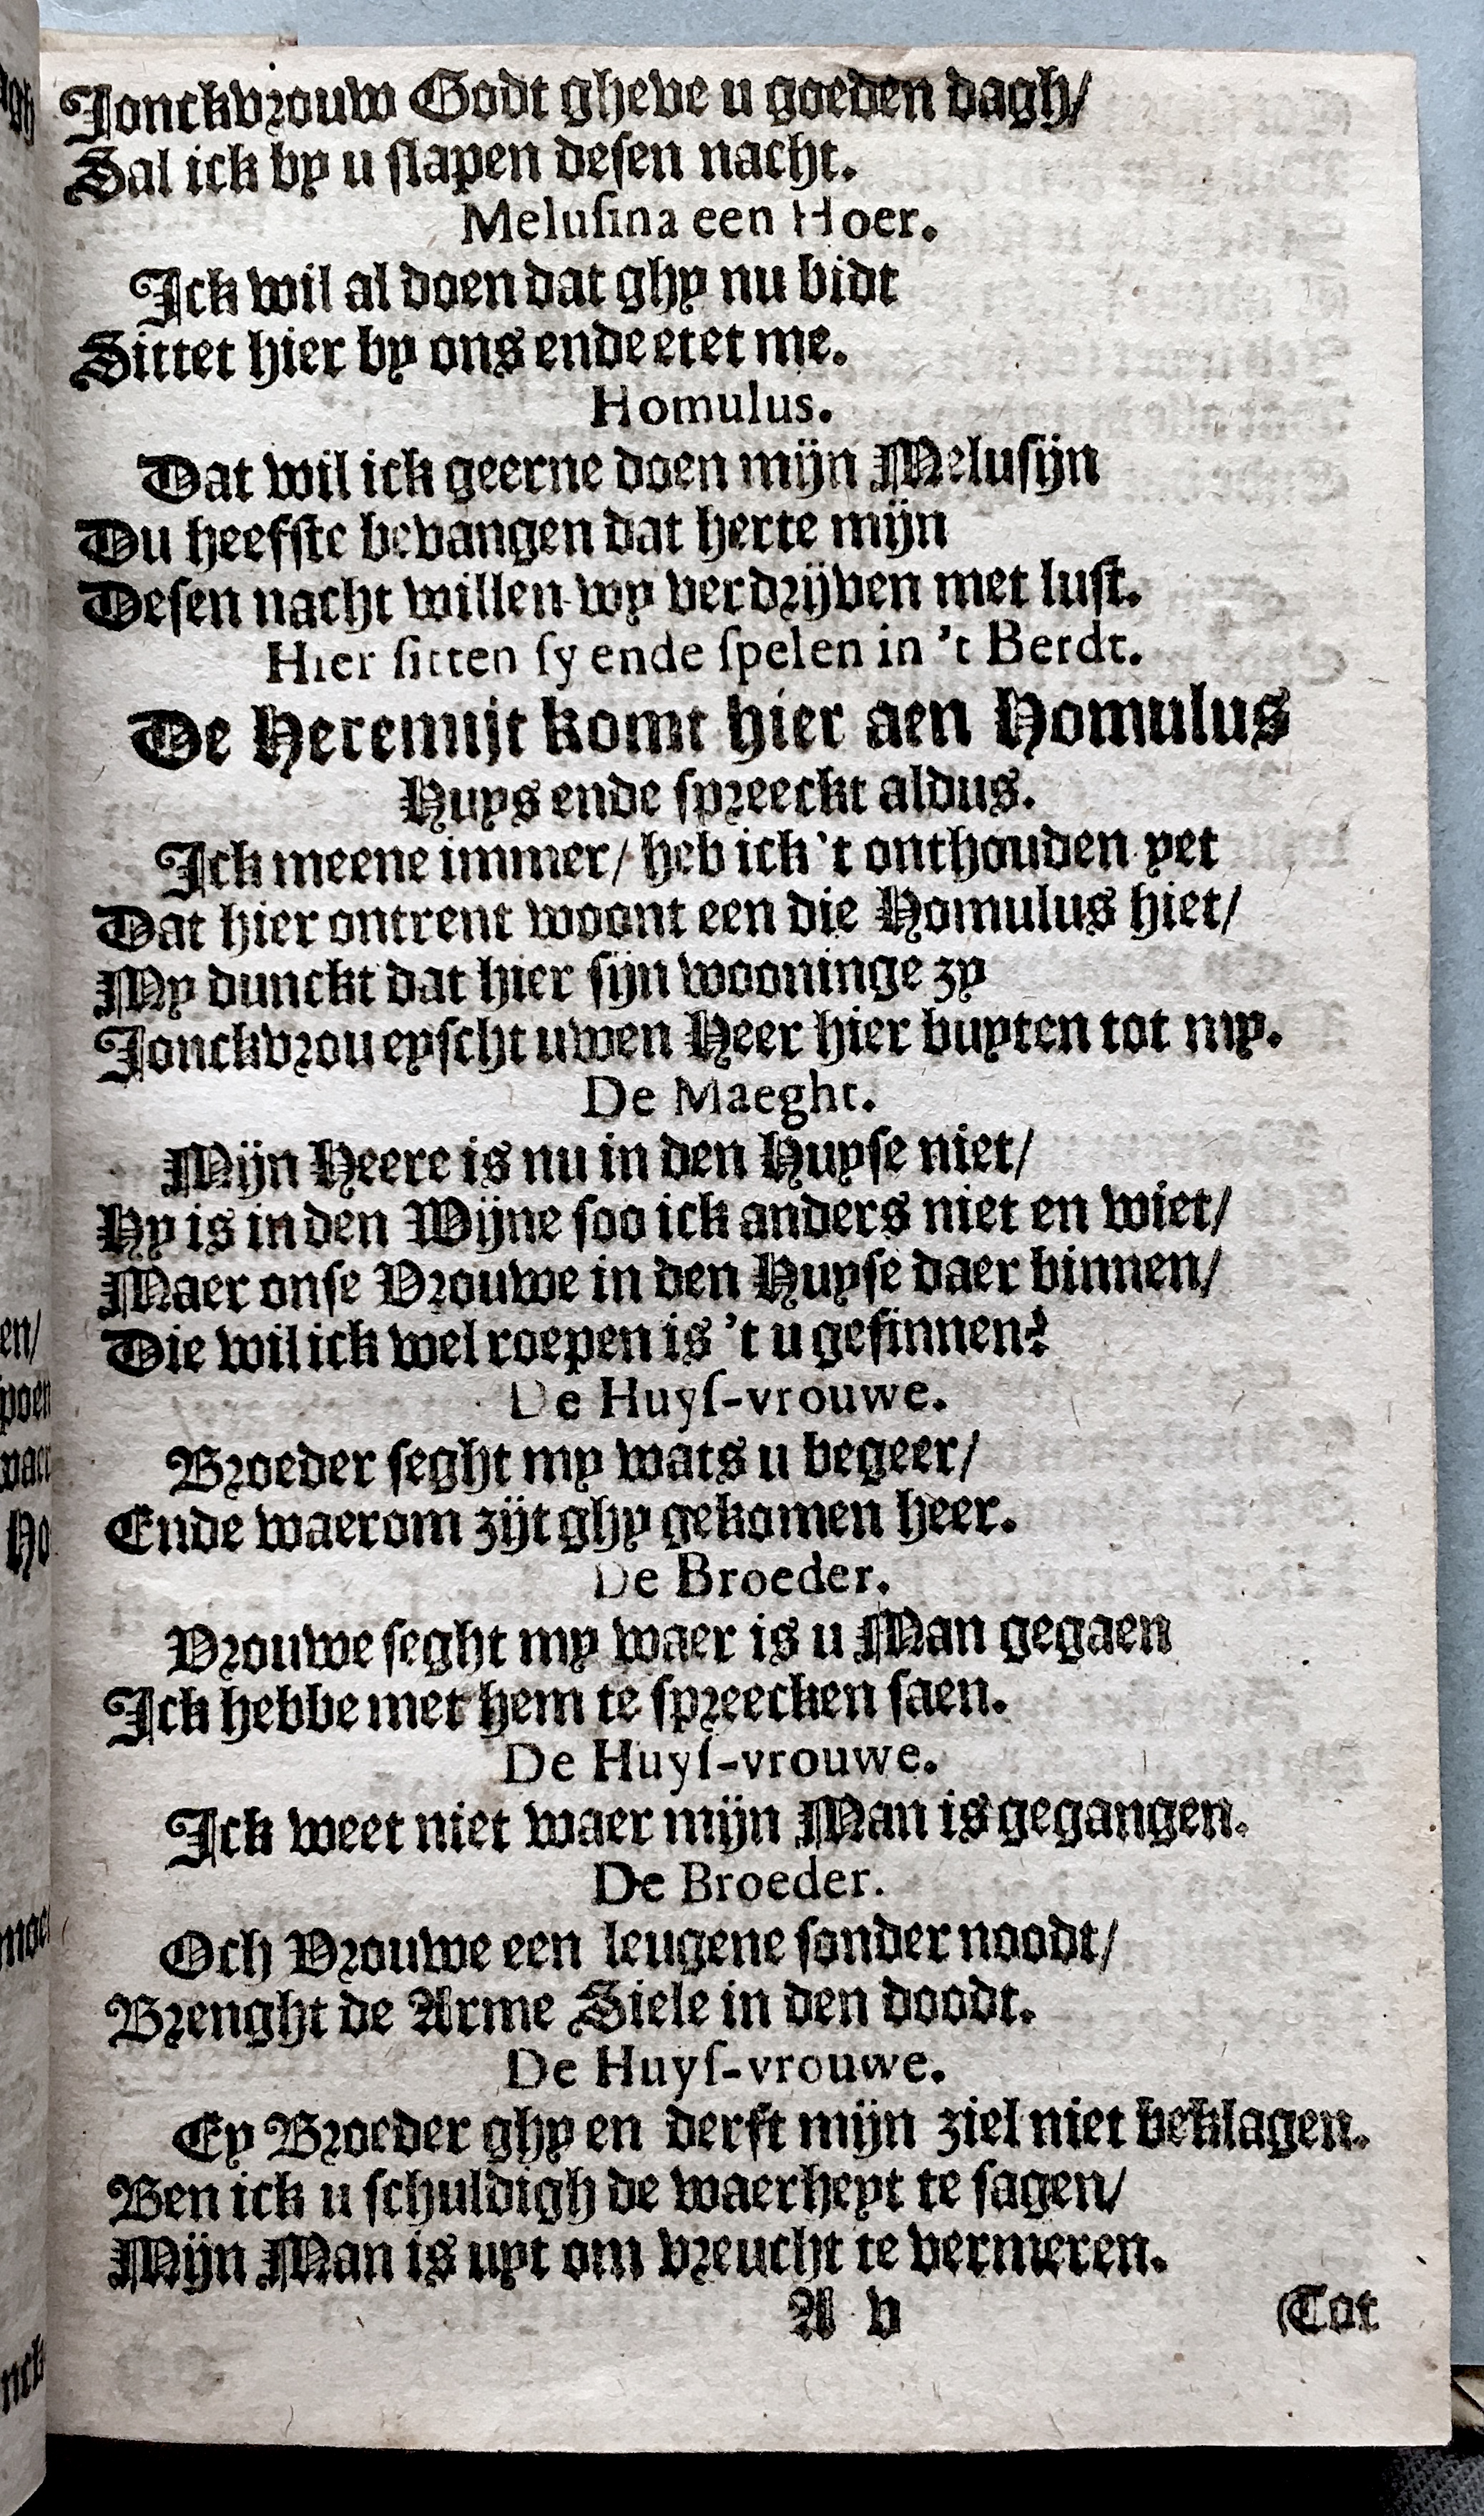 Jonckvrouw Godt gheve u goeden dagh/
Sal ick by u slapen desen nacht.
Melusina een Hoer.
Ick wil al doen dat ghy nu bidt
Sittet hier by ons ende etet me.
Homulus.
Dat wil ick geerne doen mijn Melusijn
Du heefste bevangen dat herte mijn
Desen nacht willen wy verdrijven met lust.
Hier sitten sy ende spelen in 't Berdt.
De Heremijt komt hier aen Homulus
Huys ende spreeckt aldus.
Ick meene immer/ heb ick 't onthouden yet
Dat hier ontrent woont een die Homulus hiet/
My dunckt dat hier sijn wooninge zy
Jonckvrou eyscht uwen Heer hier buyten tot my.
De Maeght.
Mijn Heere is nu in den Huyse niet/
Hy is in den Wijne soo ick anders niet en wiet/
Maer onse Vrouwe in den Huyse daer binnen/
Die wil ick wel roepen is 't u gesinnen?
De Huys-vrouwe.
Broeder seght my wats u begeer/
Ende waerom zijt ghy gekomen heer.
De Broeder.
Vrouwe seght my waer is u Man gegaen
Ick hebbe met hem te spreecken saen.
De Huys-vrouwe.
Ick weet niet waer mijn Man is gegangen.
De Broeder.
Och Vrouwe een leugene sonder noodt/
Brenght de Arme Siele in den doodt.
De Huys-vrouwe.
Ey Broeder ghy en derft mijn ziel niet beklagen.
Ben ick u schuldigh de waerheyt te sagen/
Mijn Man is uyt om vreucht te vermeren.
A v (Tot